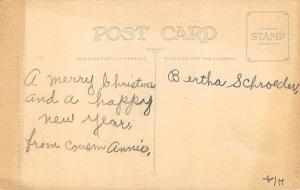 POST CARD
PLACE
STAMP
HERE
THIS SIDE FOR THE MESSAGE
THIS SIDE FOR THE ADDRESS
A merry Christmas
and a happy
new year,
from cousin Annie,
Bertha Schroeder,